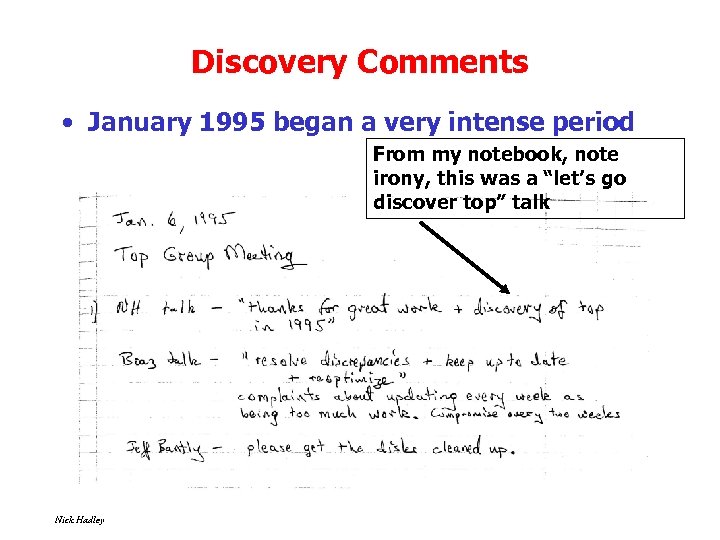 Discovery Comments
• January 1995 began a very intense period
From my notebook, note
irony, this was a “let’s go
discover top” talk
Jan. 6, 1995
Top Group Meeting
1) NH talk – "thanks for great work + discovery of top
in 1995"
Boaz talk – "resolve discrepancies + keep up to date
+ reoptimize"
complaints about updating every week as
being too much work. Compromise every two weeks
Jeff Bantly – please get the disks cleaned up.
Nick Hadley